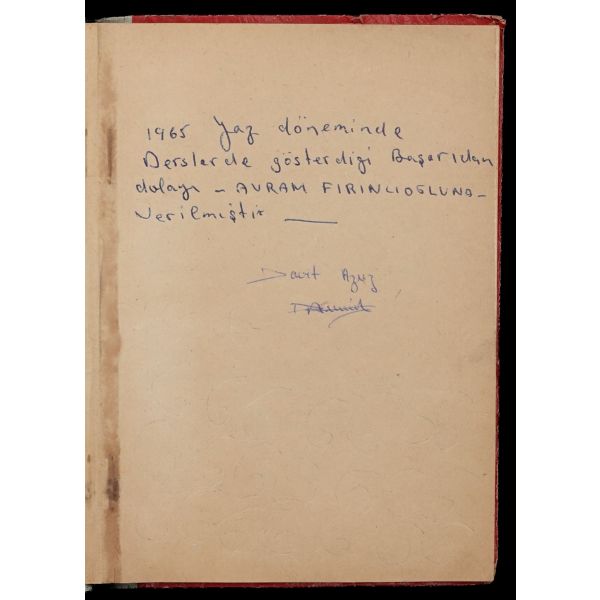 1965 Yaz döneminde
Derslerde gösterdiği Başarıdan
dolayı - AVRAM FIRINCIOGLUNA -
verilmiştir ——
Davit Azuz